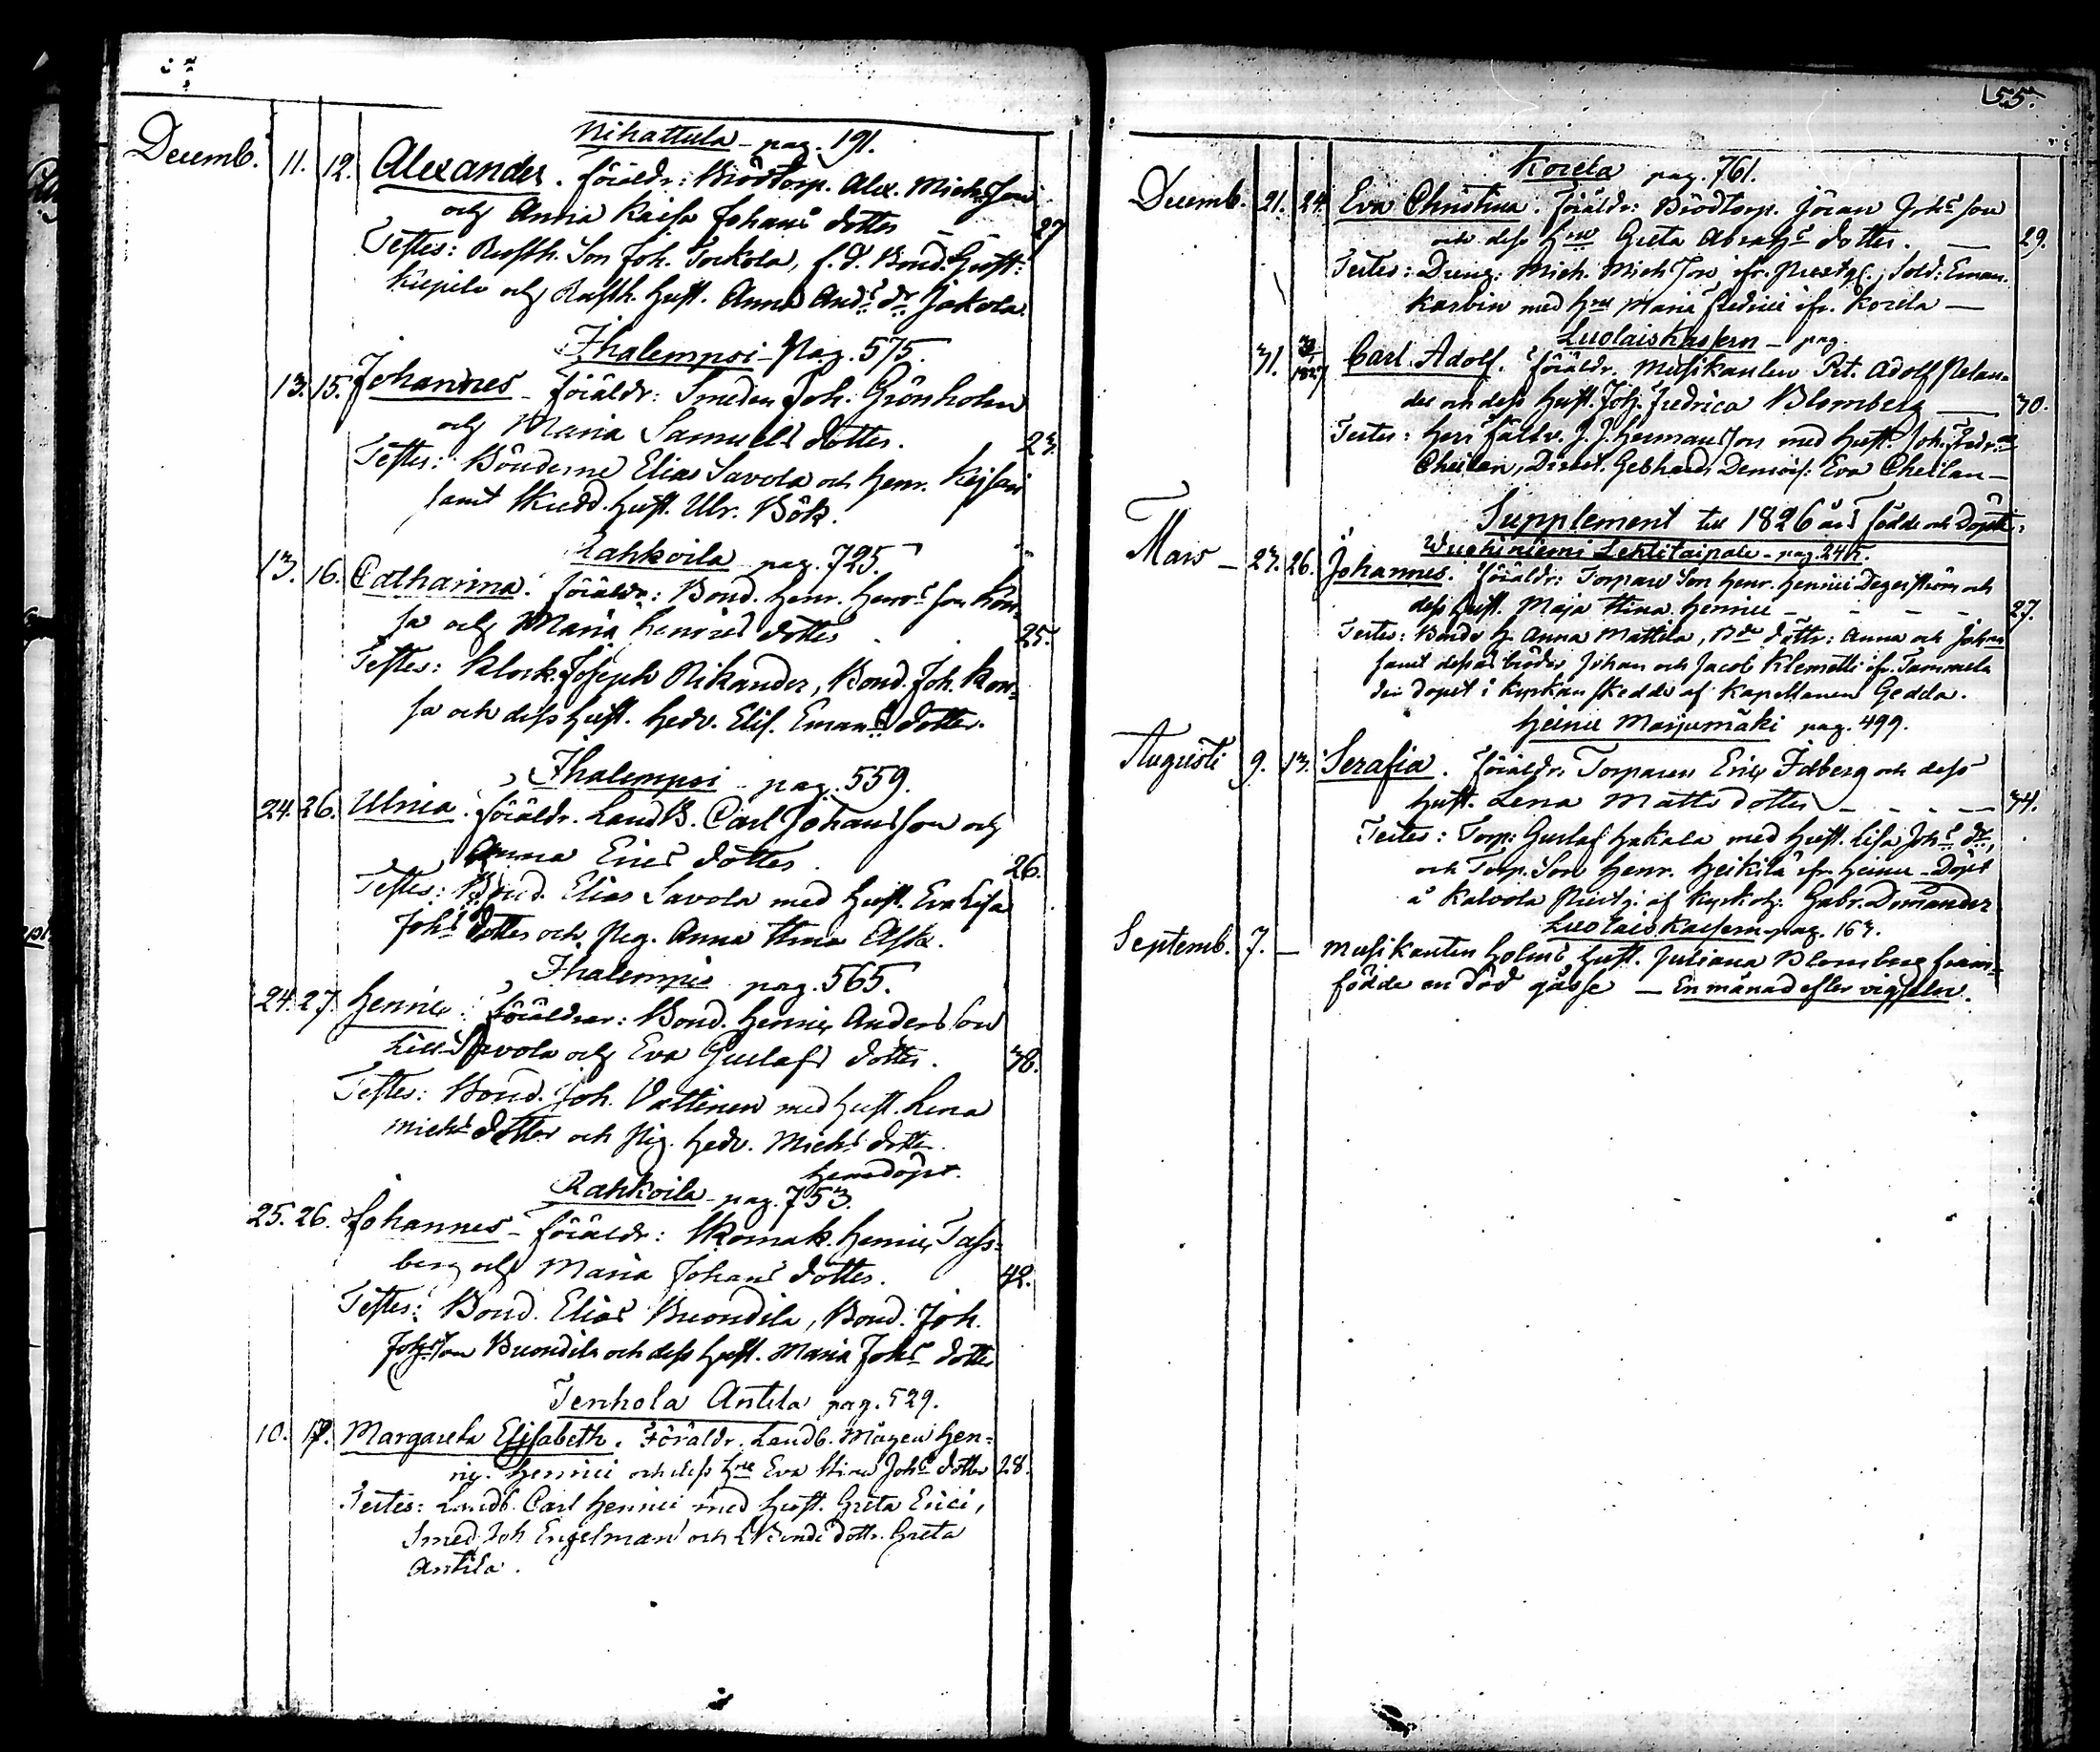 Nihattula - pag. 191.
Decemb. 11. 12. Alexander. föräldr: Brödtorp. Alex. Michs Son
och Anna Kaisa Johans dotter 27
Testes: Rusth. Son Joh. Torkola, f. d. Bond. Gust:
Kiepila och Rusth. Hust. Anna Ands dr Jakola.
Ihalempoi - Pag. 575.
13. 15. Johannes - föräldr: Smeden Joh. Grönholm
och Maria Samuels dotter. 23.
Testes: Bönderne Elias Savola och Henr. Keisari
samt Skudd. Hust. Ulr. Bök.
Rahkoila pag. 725.
13. 16. Catharina. föräldr: Bond. Henr. Henrs Son Kon-
sa och Maria Henrics dotter 25.
Testes: Klock. Joseph Nikander, Bond. Joh. Kon-
sa och dess Hust. Hedv. Elis. Emans dotter.
Ihalempoi pag. 559.
24. 26. Ulrica. föräldr. Land B. Carl Johans Son och
Anna Erics dotter 26.
Testes: Bond. Elias Savola med Hust. Eva Lisa
Johs dotter och Pig. Anna Stina Ask.
Ihalempoi pag. 565.
24. 27. Henric. föräldrar: Bond. Henric Anders Son
Lill Savola och Eva Gustafs dotter. 38.
Testes: Bond. Joh. Vattinen med Hust. Lena
Michs dotter och Pig. Hedv. Michs dotter
Hemdöpt.
Rahkoila - pag. 753.
25. 26. Johannes - föräldr: Skomak. Henric Tass-
berg och Maria Johans dotter. 42.
Testes: Bond. Elias Buondila, Bond. Joh.
Johs Son Buondila och dess Hust. Maria Johs dotter
Tenhola Antila pag. 529.
10. 12. Margareta Elisabeth. Föräldr. Landb. Mågen Hen-
ric Henrici och dess Hru Eva Stina Johs dotter 28.
Testes: Landb. Carl Henrici med Hust. Greta Erici,
Smed. Joh Engelman och Bonde dottr. Greta
Antila.
55.
Korela pag. 761.
Decemb. 21. 24. Eva Christina. föräldr: Brödtorp. Jöran Johs Son
och dess Hru Greta Abrahs dotter. 29.
Testes: Dreng: Mich. Mich Son ifr. Prestg.; Sold: Eman.
Karbin med Hru Maria Fredrici ifr. Korela
Luolais Kasern - pag.
31. 3/1 1827 Carl Adolf. föräldr. Musikanten Pet. Adolf Nelan-
der och dess Hust. Joh. Fredrica Blomberg 30.
Testes: Herr Fältv. J. J. Hermans Son med Hust. Joh. Fredr.
Cheilan, Direct. Gebhard, Demois: Eva Cheilan
Supplement till 1826 års födde och Döpte:
Wuohiniemi Lehtitaipale - pag. 245.
Mars - 23. 26. Johannes. föräldr: Torpare Son Henr. Henrici Degerström och
dess Hust. Maja Stina Henrici 27.
Testes: Bonde H. Anna Mattila, Bde döttr: Anna och Johan
samt dessas bröder Johan och Jacob Klemetti ifr. Tammela
der dopet i kyrkan skedde af Kapellanen Gedda.
Heinu Marjumäki pag. 499.
Augusti 9. 13. Serafia. föräldr. Torparen Eric Idberg och dess
Hust. Lena Matts dotter 34.
Testes: Torp: Gustaf Hakala med Hust. Lisa Johs dr,
och Torp. Son Henr. Heikilä ifr. Heinu - Döpt
å Kalvola Prestg: af Kyrkoh: Gabr. Domander
Luolais Kasern pag. 163.
Septemb. 7. - Musikanten Holms Hust. Juliana Blomberg fram-
födde en död gåsse - En månad efter vigseln.